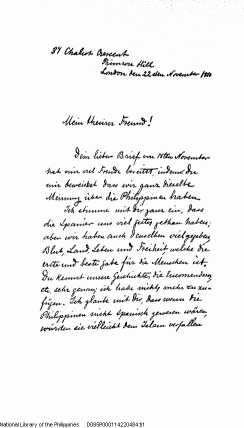 37 Chalcot Crescent
Primrose Hill
London den 22 den November 1888
Mein theurer Freund!
Dein lieber Brief vom 18ten November
hat mir viel Freude bereitet indem du
mir beweisest dass wir ganz dieselbe
Meinung über die Philippinen haben.
Ich stimme mit dir ganz ein, dass
die Spanier uns viel gutes gethan haben,
aber wir haben auch denselben viel gegeben
Blut, Land, Leben und Freiheit welche die
erste und beste gabe für die Menschen ist.
Du kennst unsere Geschichte, die Encomenderos
etc. sehr genau; ich habe nichts mehr zu zu-
fügen. Ich glaube mit dir, dass wenn die
Philippinen nicht Spanisch gewesen wären,
würden sie vielleicht dem Islam verfallen
National Library of the Philippines D095R00011422048481